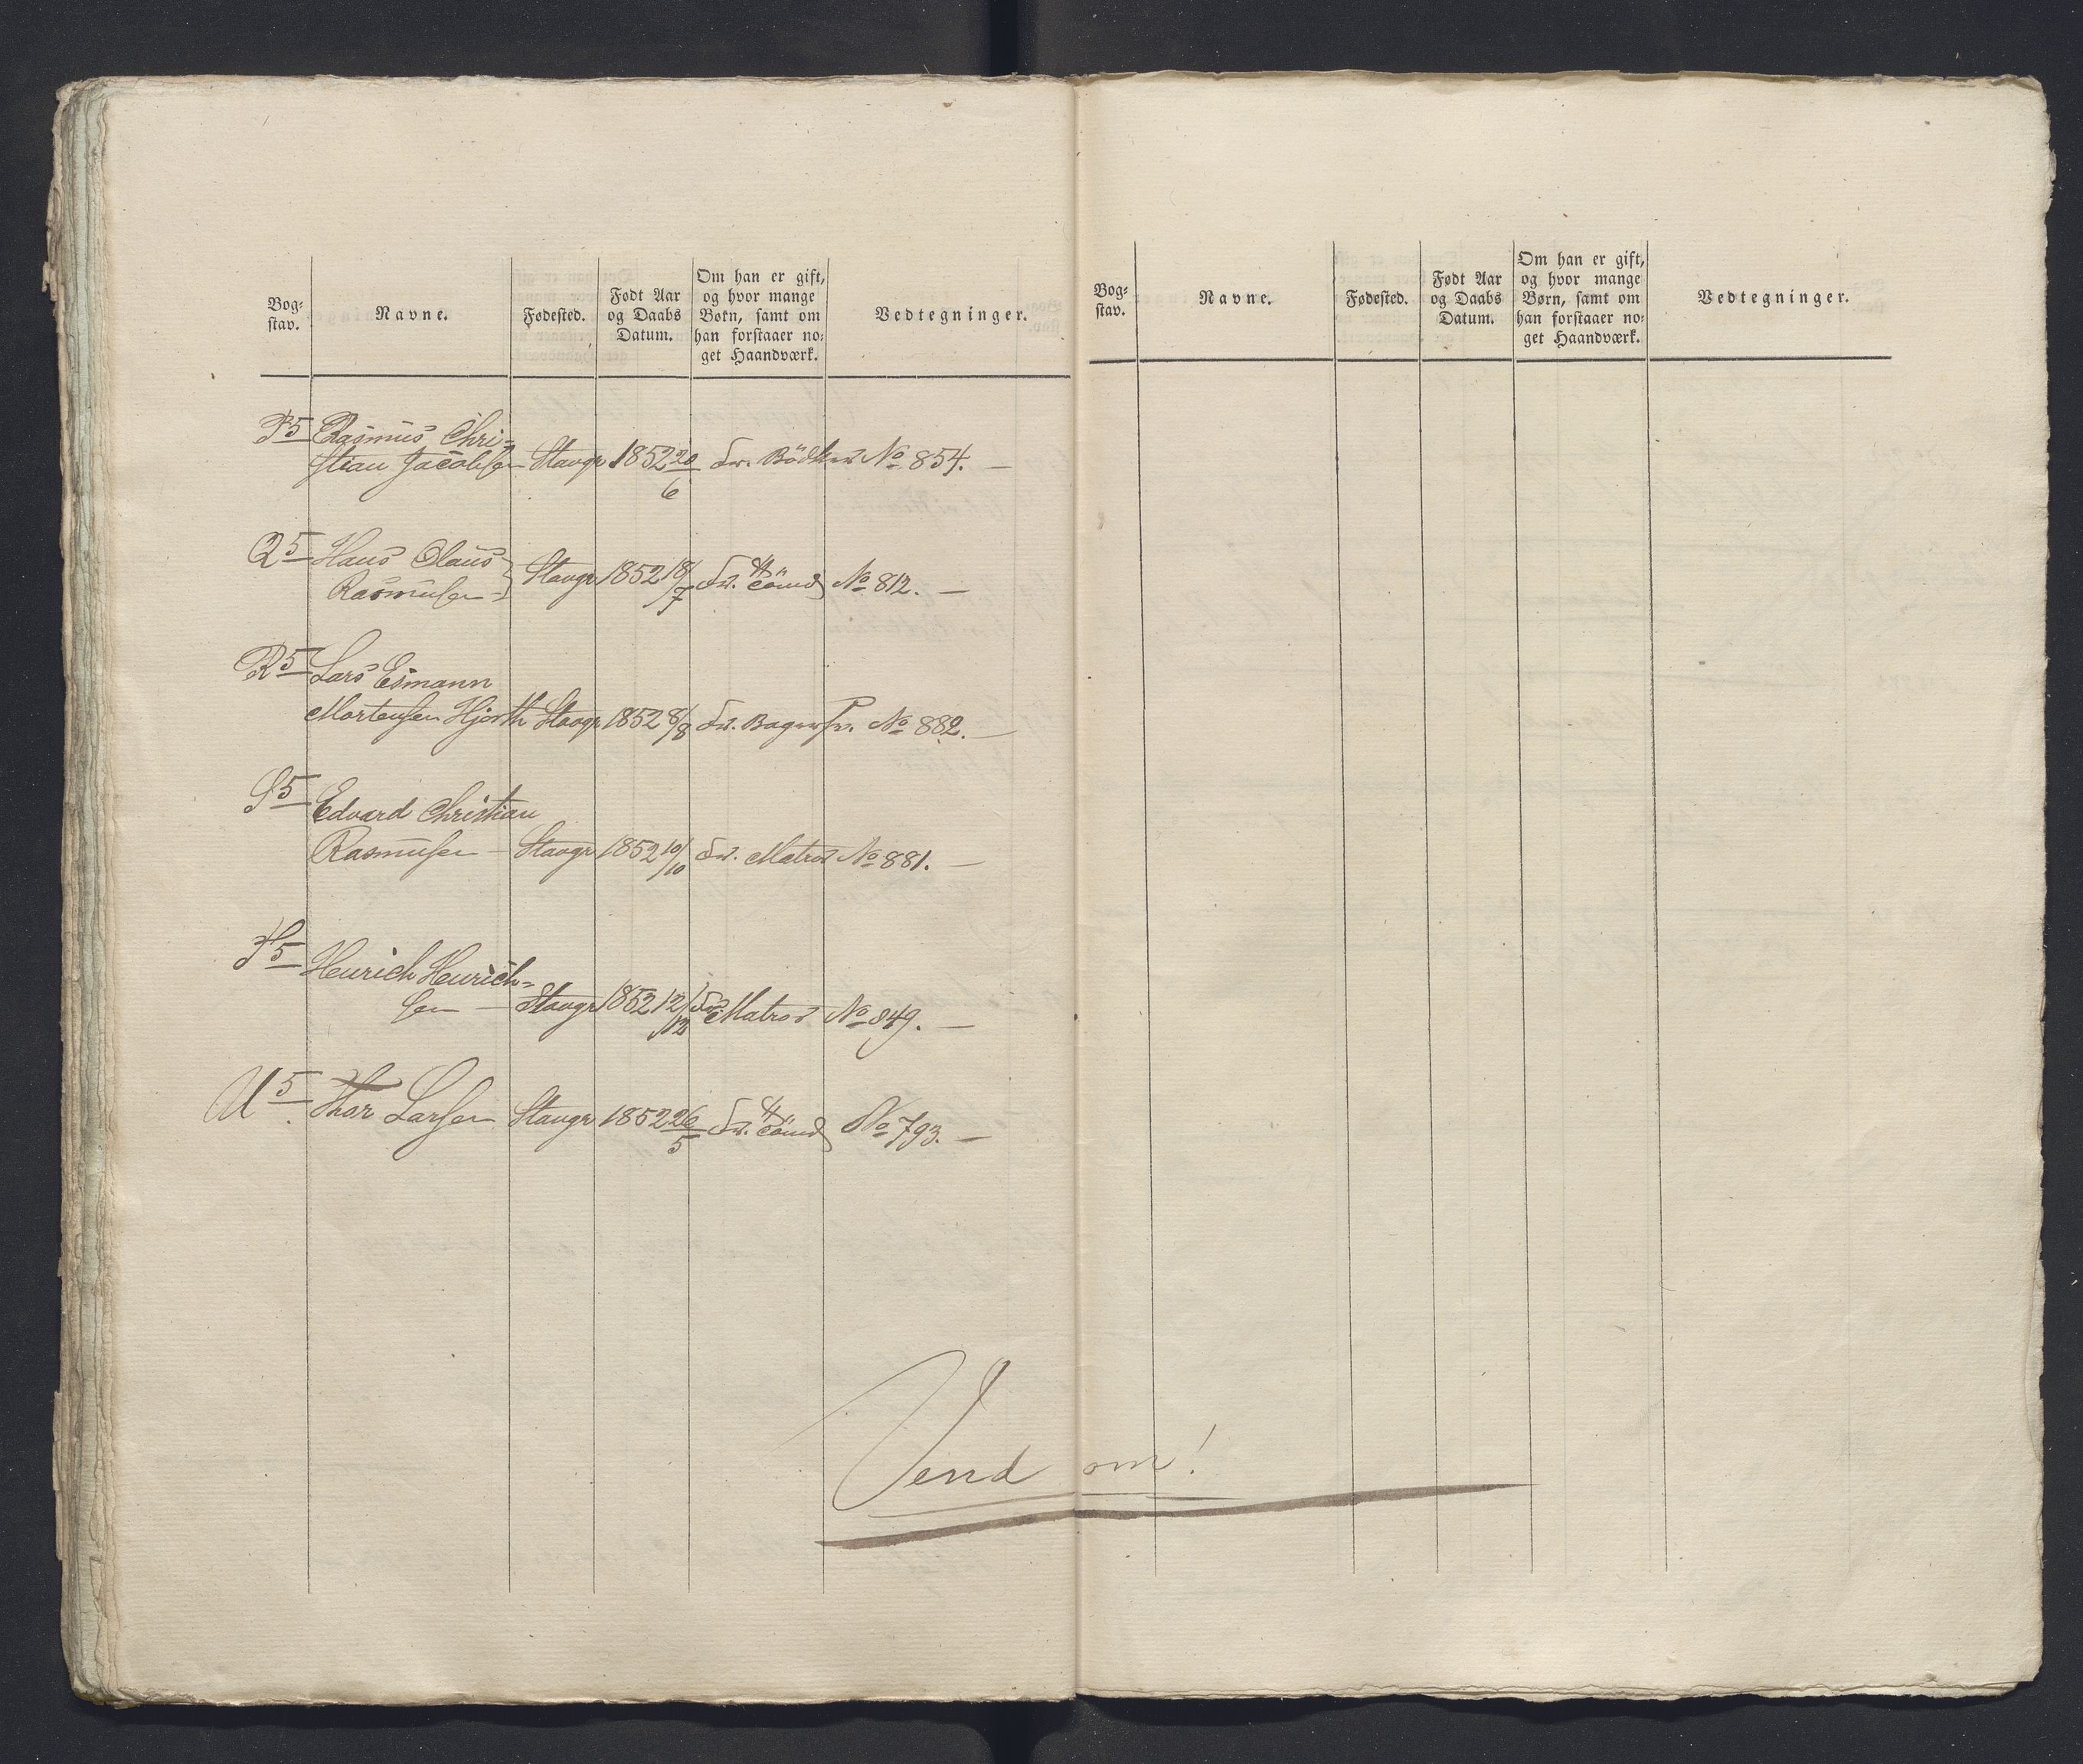 Bog-
stav.
Navne.
Fødested.
Født Aar
og Daabs
Datum.
Om han er gift,
og hvor mange
Børn, samt om
han forstaaer no-
get Haandværk.
Vedtegninger.
P5 Rasmus Chri-
stian Jacobsen Stavgr 1852 20/6 Fr. Bödker No 854. —
Q5 Hans Olaus
Rasmusen Stavgr 1852 18/7 No 812. —
R5 Lars Esmann
Mortensen Hjorth Stavgr 1852 8/8 No 882. —
S5 Edvard Christian
Rasmusen — Stavgr 1852 10/10 Fr. Matros No 881. —
T5 Henrich Henrich-
sen — Stavgr 1852 12/12 Fr. Matros No 849. —
U5 Thor Larsen Stavgr 1852 26/5 No 793. —
Vend om!
Bog-
stav.
Navne.
Fødested.
Født Aar
og Daabs
Datum.
Om han er gift,
og hvor mange
Børn, samt om
han forstaaer no-
get Haandværk.
Vedtegninger.